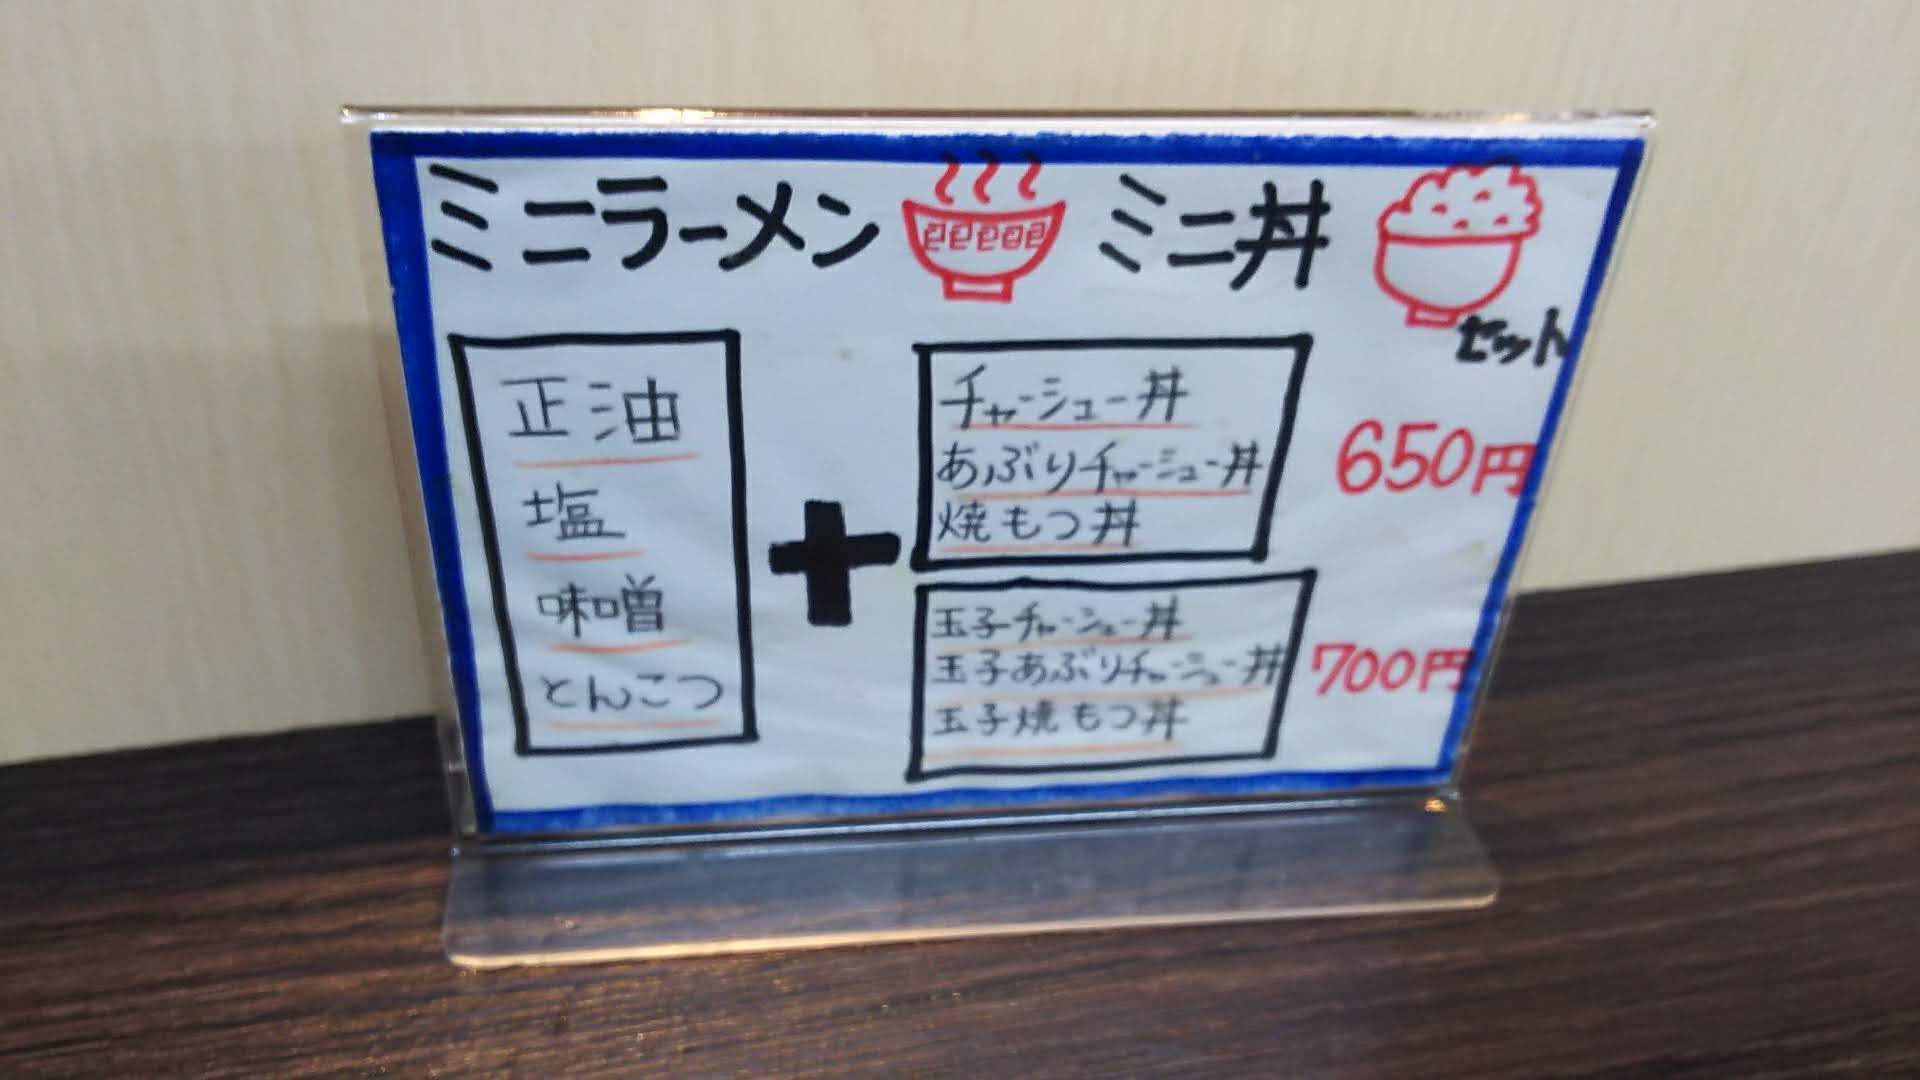 ミニラーメン ミニ丼
セット
正油
塩
味噌
とんこつ
+
チャーシュー丼
あぶりチャーシュー丼
焼もつ丼
650円
玉子チャーシュー丼
玉子あぶりチャーシュー丼
玉子焼もつ丼
700円